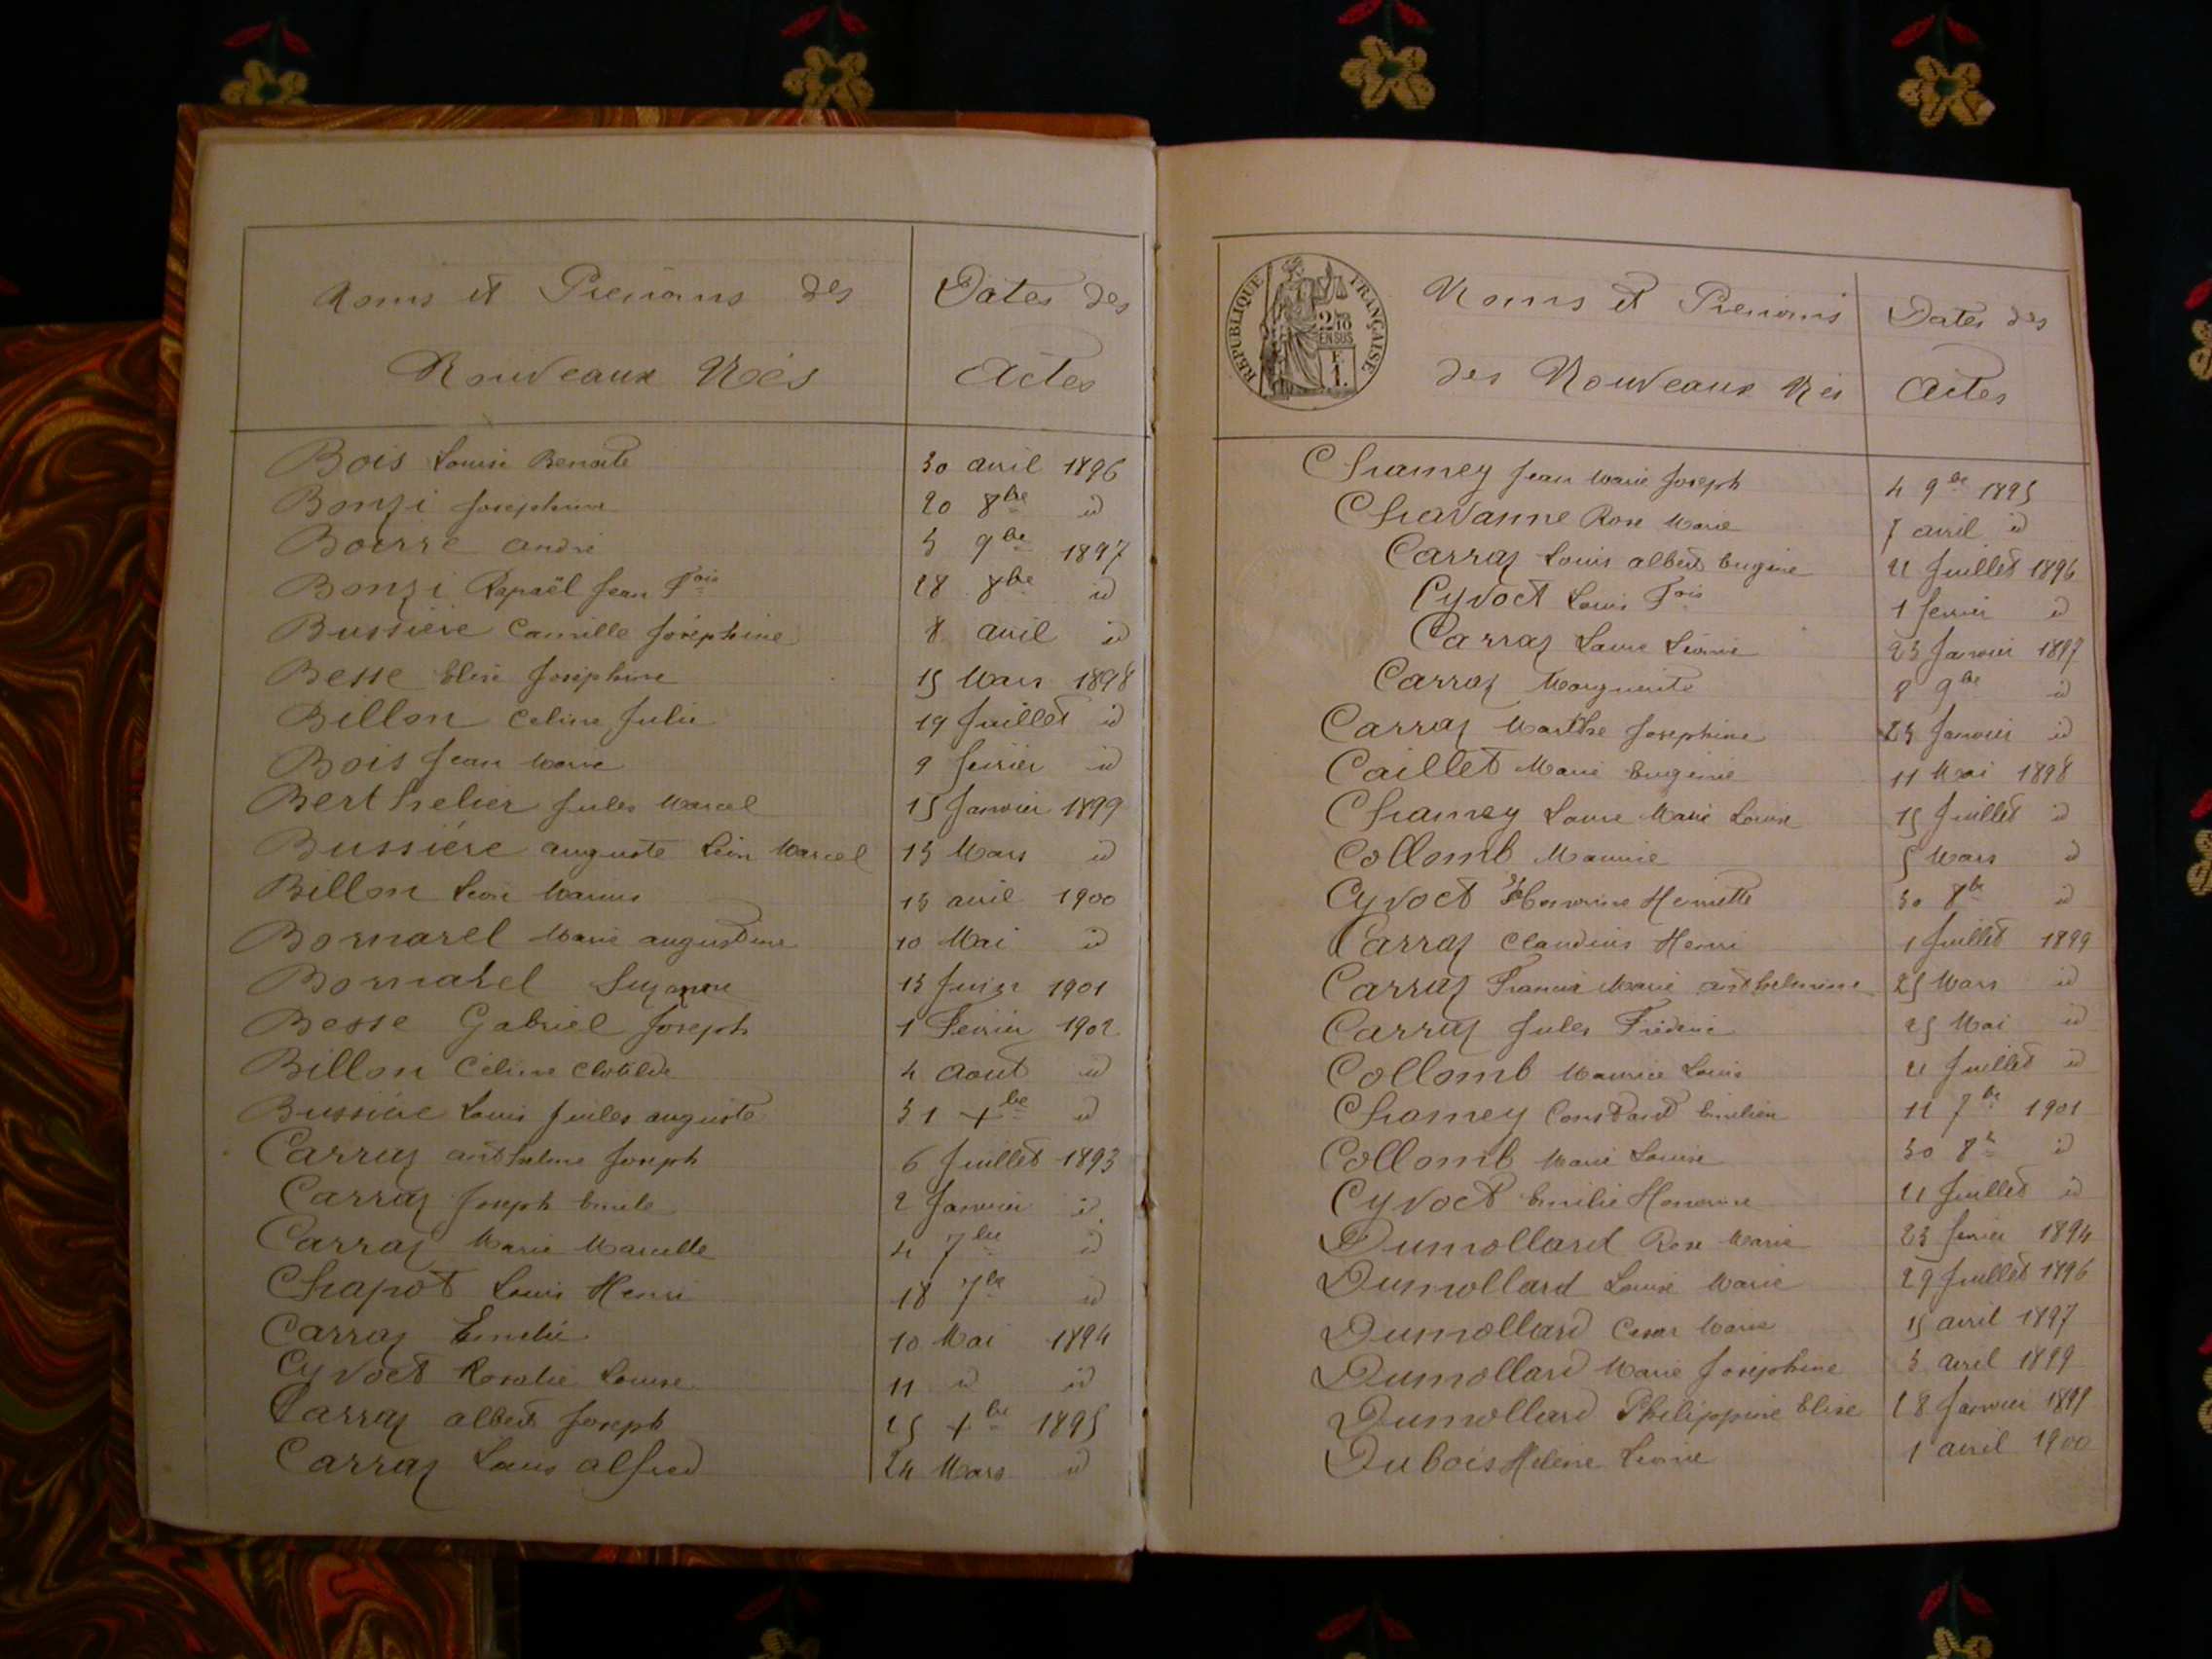 Noms et Prenoms des
Nouveaux Nés
Dates des
Actes
Bois Louise Benoite 30 avril 1896
Bonzi Joséphine 20 8bre id
Boerre André 5 9bre 1897
Bonzi Rapaël Jean Fois 28 8bre id
Bussiere Camille Joséphine 8 avril id
Besse Elise Joséphine 15 Mars 1898
Billon Celine Julie 19 Juillet id
Bois Jean Marie 9 fevrier id
Berthelier Jules Marcel 15 Janvier 1899
Bussiére auguste Léon Marcel 15 Mars id
Billon Léon Marius 15 avril 1900
Bornarel Marie augustine 10 Mai id
Bornarel Suzanne 15 Juin 1901
Besse Gabriel Joseph 1 Fevrier 1902
Billon Céline Clotilde 4 Aout id
Bussiére Louis Jules auguste 31 xbre id
Carraz anthelme Joseph 6 Juillet 1893
Carraz Joseph Emile 2 Janvier id
Carraz Marie Marcelle 4 7bre id
Chapot Louis Henri 18 7bre id
Carraz Emelie 10 Mai 1894
Cyvoct Rosalie Louise 11 id id
Carraz albert Joseph 25 xbre 1895
Carraz Louis alfred 24 Mars id
RÉPUBLIQUE FRANÇAISE
2/10
EN SUS
E.
1.
Noms et Prenoms
des Nouveaux Nés
Dates des
Actes
Chamey Jean Marie Joseph 4 9bre 1895
Chavanne Rose Marie 7 avril id
Carraz Louis albert Eugène 21 Juillet 1896
Cyvoct Louis Fois 1 fevrier id
Carraz Laure Léonie 23 Janvier 1897
Carraz Marguerite 8 9bre id
Carraz Marthe Josephine 25 Janvier id
Caillet Marie Eugenie 11 Mai 1898
Chamey Laure Marie Louise 15 Juillet id
Collomb Maurice 5 Mars id
Cyvoct Honorine Henriette 30 8bre id
Carraz Claudius Henri 1 Juillet 1899
Carraz Francia Marie anthelmine 25 Mars id
Carraz Jules Frédéric 25 Mai id
Collomb Maurice Louis 21 Juillet id
Chamey Constant Emilien 11 7bre 1901
Collomb Marie Louise 30 8bre id
Cyvoct Emilie Honorine 21 Juillet id
Dumollard Rose Marie 23 fevrier 1894
Dumollard Louise Marie 29 Juillet 1896
Dumollard Cesar Marie 15 avril 1897
Dumollard Marie Joséphine 3 Avril 1899
Dumollard Philippine Elise 28 Janvier 1899
Dubois Hélène Léonie 1 avril 1900